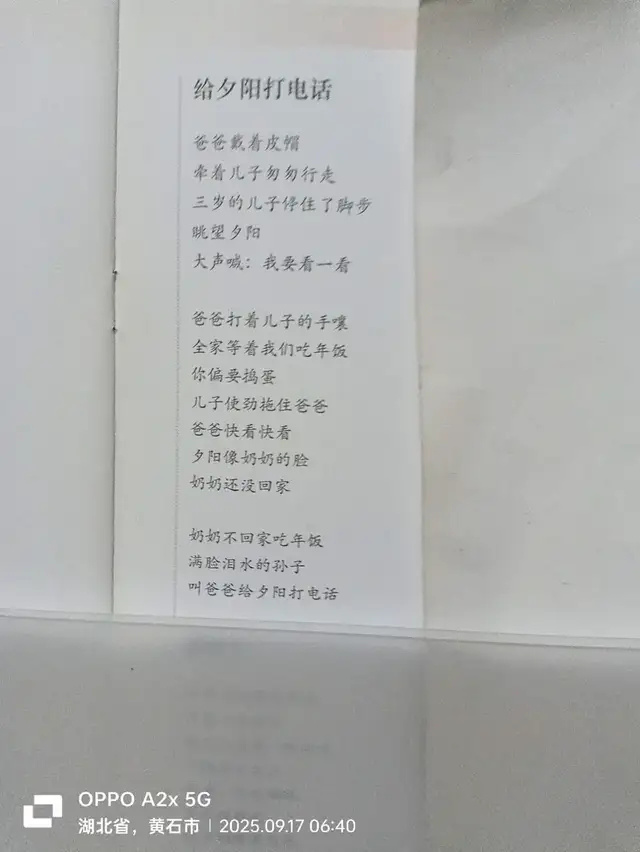 给夕阳打电话
爸爸戴着皮帽
牵着儿子匆匆行走
三岁的儿子停住了脚步
眺望夕阳
大声喊：我要看一看
爸爸打着儿子的手嚷
全家等着我们吃年饭
你偏要捣蛋
儿子使劲拖住爸爸
爸爸快看快看
夕阳像奶奶的脸
奶奶还没回家
奶奶不回家吃年饭
满脸泪水的孙子
叫爸爸给夕阳打电话
OPPO A2x 5G
湖北省，黄石市 | 2025.09.17 06:40